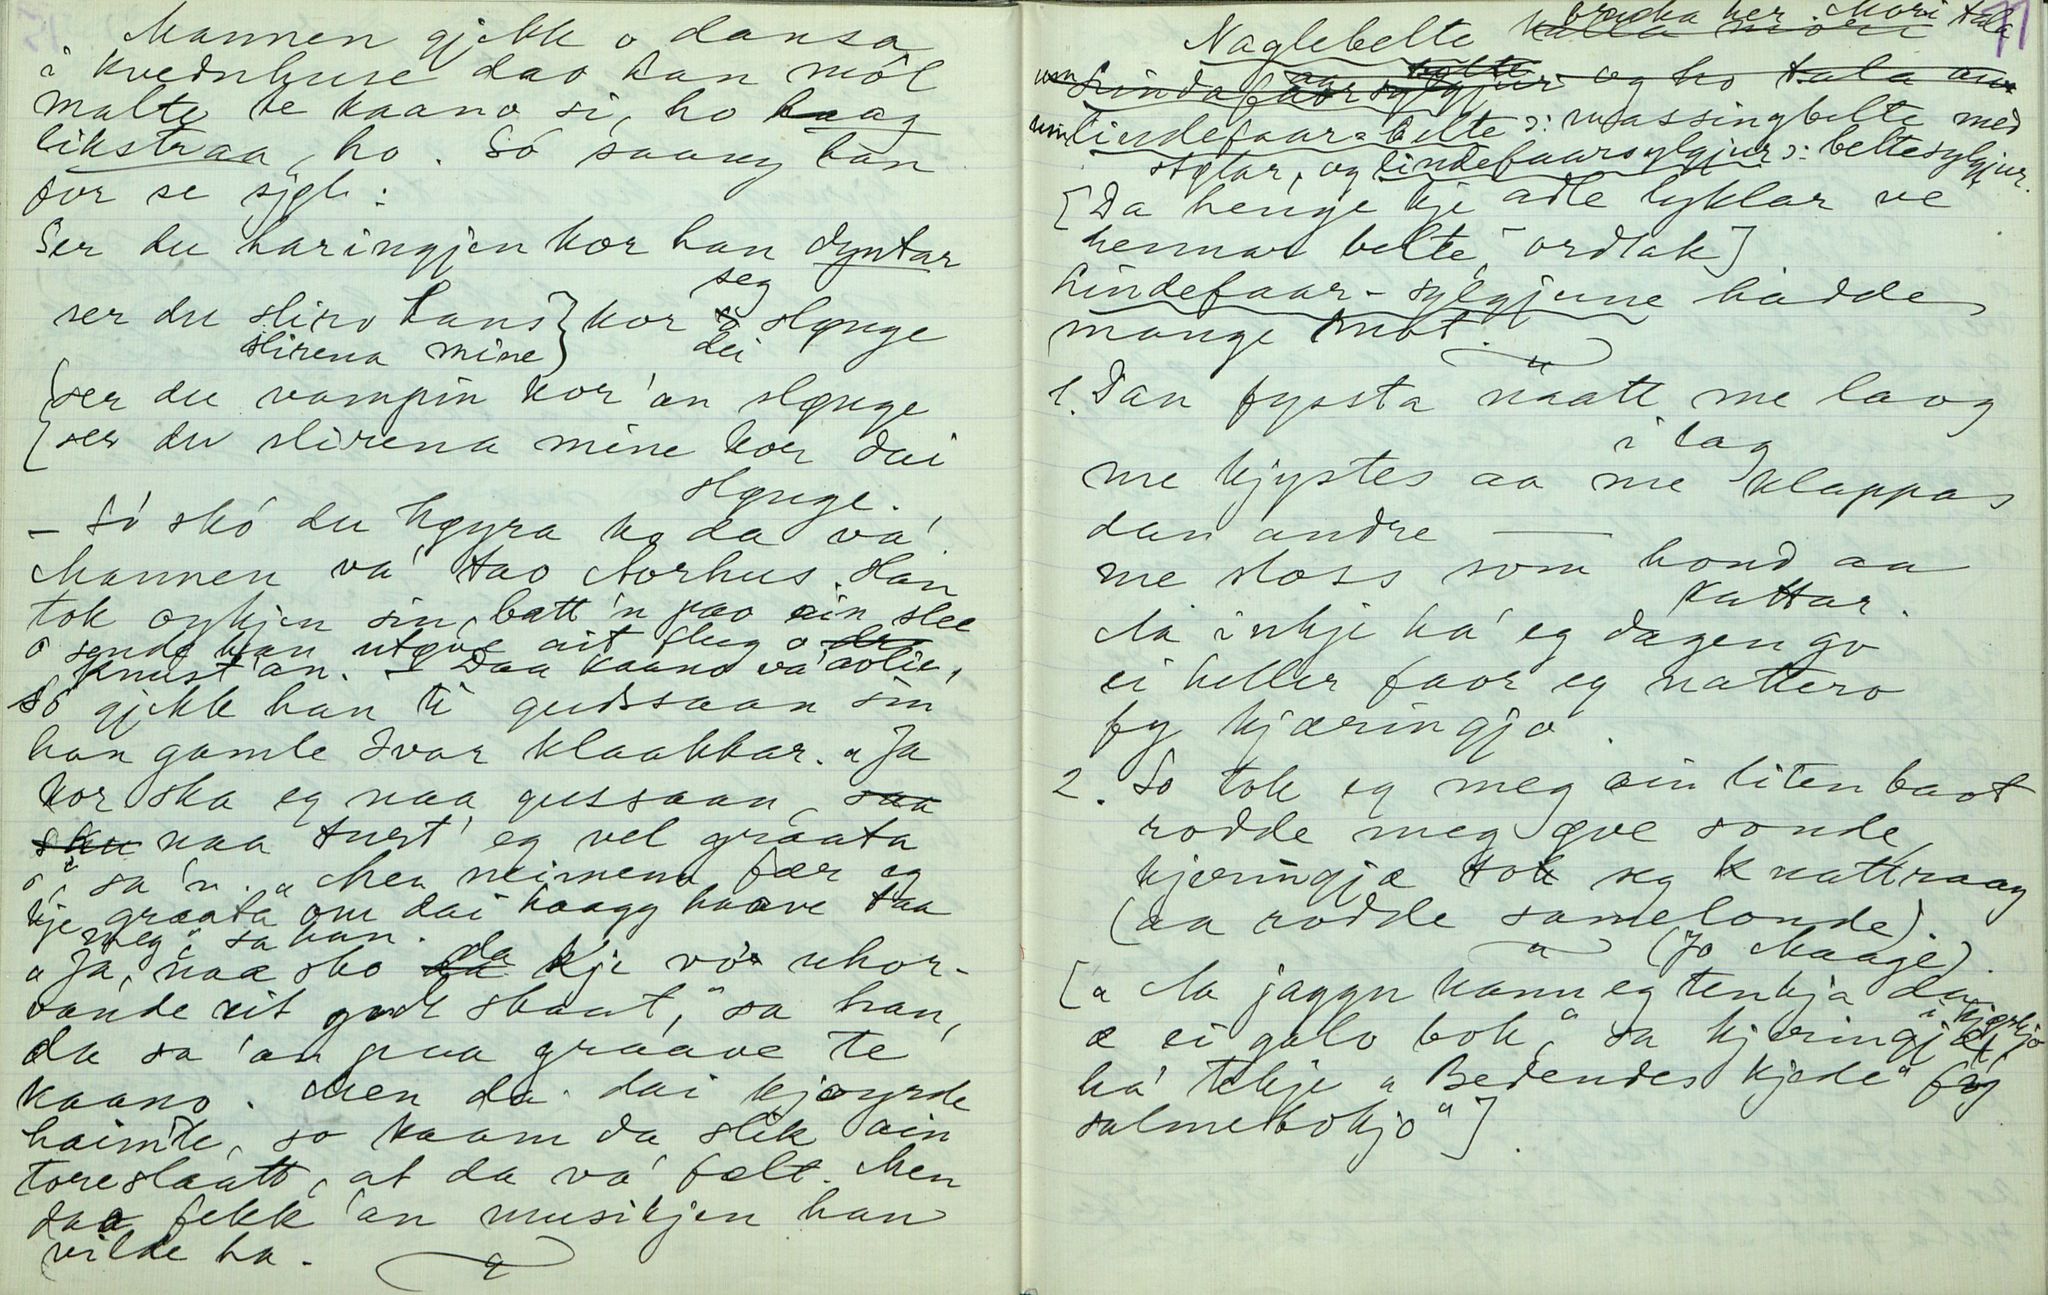 Mannen gjekk o dansa
i kvednhuse dao han mól
malte te kaano si, ho laag
likstraa, ho. Só saang han
for se sjøl:
Ser du haringjen kor han dyntar
seg
ser du sliro hans } kor slønge
slirena mine } dei
ser du vampin kor'an slønge
ser du slirena mine kor dai
slønge.
– Só skó du høyra ko da va'.
Mannen va' tao Aorhus. Han
tok oykjen sin, batt'n pao ein slee
o sende han utøve ait flug o
knust'an. – Daa kaano va' aolie,
só gjekk han ti gudssaan sin
han gamle Ivar Klaakkar. "Ja
kor ska eg naa gussaan, saa
sku naa turt' eg vel graata
ó", sa'n. "Men neimenn fær eg
kje graata om dai haagg haave taa
meg" sa han.
"Ja, naa sko da kje vó uhor-
vande eit godt skaut," sa han,
da sa'an paa graave te
kaano. Men da dai kjøyrde
haimte, so kaam da slik ain
toreslaatt, at da va' fælt. Men
daa fekk'an musikjen han
vilde ha.
11
Naglebelte bruka her. Mari tala
um Lindafaorsylgjur og ho tala om
um lindefaar-belte ɔ: massingbelte med
stølar, og lindefaarsylgjur ɔ: beltesylgjur.
[Da henge kje adle lyklar ve
hennar belte, ordtak]
Lindefaar-sylgjune hadde
mange mot.
1. Dan fyssta naatt me laog
i lag
me kjystes aa me klappas
dan andre —
me sloss som hond aa
kattar.
Na inkje ha' eg dagen go
ei heller faor eg nattero
fy kjæringjo.
2. So tok eg meg ein liten baot
rodde meg øve sonde,
kjæringjæ tok seg knattraag
(aa rodde samelonde).
(Jo Maage).
["Na jaggu kann eg tenkja da
æ ei galo bok" sa kjæringjæ i kjørkjo
ha' tekje "Bedendes kjede" for
salmebokjo"].